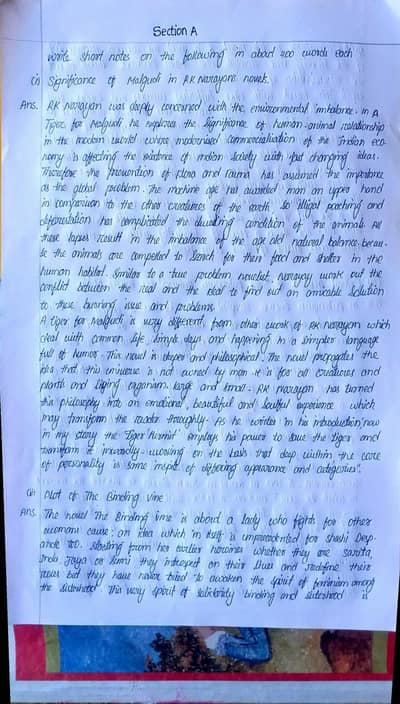 Section A
Write short notes on the following in about 200 words each
(i) Significance of Malgudi in RK Narayan's novels.
Ans. RK Narayan was deeply concerned with the environmental imbalance. In A
Tiger for Malgudi he explores the significance of human-animal relationship
in the modern world where modernized commercialisation of the Indian eco-
nomy is affecting the existence of Indian society with fast changing ideas.
Therefore the prevention of flora and fauna has assumed the importance
as the global problem. The machine age has awarded man an upper hand
in comparison to the other creatures of the earth, so illegal poaching and
deforestation has complicated the dwelling condition of the animals. All
these lapses result in the imbalance of the age old natural balance becau-
se the animals are compelled to search for their food and shelter in the
human habitat. Similar to a true problem novelist, Narayan work out the
conflict between the real and the ideal to find out an amicable solution
to these burning issue and problems.
A tiger for Malgudi is very different from other work of RK Narayan which
deal with common life, simple days and happening in a simpler language
full of humor. This novel is deeper and philosophical. The novel propagates the
idea that this universe is not owned by man it is for all creatures and
plants and living organism large and small. RK Narayan has turned
this philosophy into an emotional, beautiful and soulful experience which
may transform the reader throughly. As he writes in his introduction, "now
in my story the 'Tiger Hermit' employs his power to save the tiger and
transform it inwardly - working on the basis that deep within the core
of personality is same inspite of differing appearance and categories".
(ii) Plot of The Binding Vine
Ans. The novel The Binding Vine is about a lady who fights for other
womans cause: an idea which in itself is unprecedented for Shashi Desp-
ande too. Starting from her earlier heroines whether they are Sarita,
Indu Jaya or Sumi they introspect on their lives and redefine their
roles but they have never tried to awaken the spirit of feminism among
the sisterhood. This very spirit of solidarity binding and sisterhood is